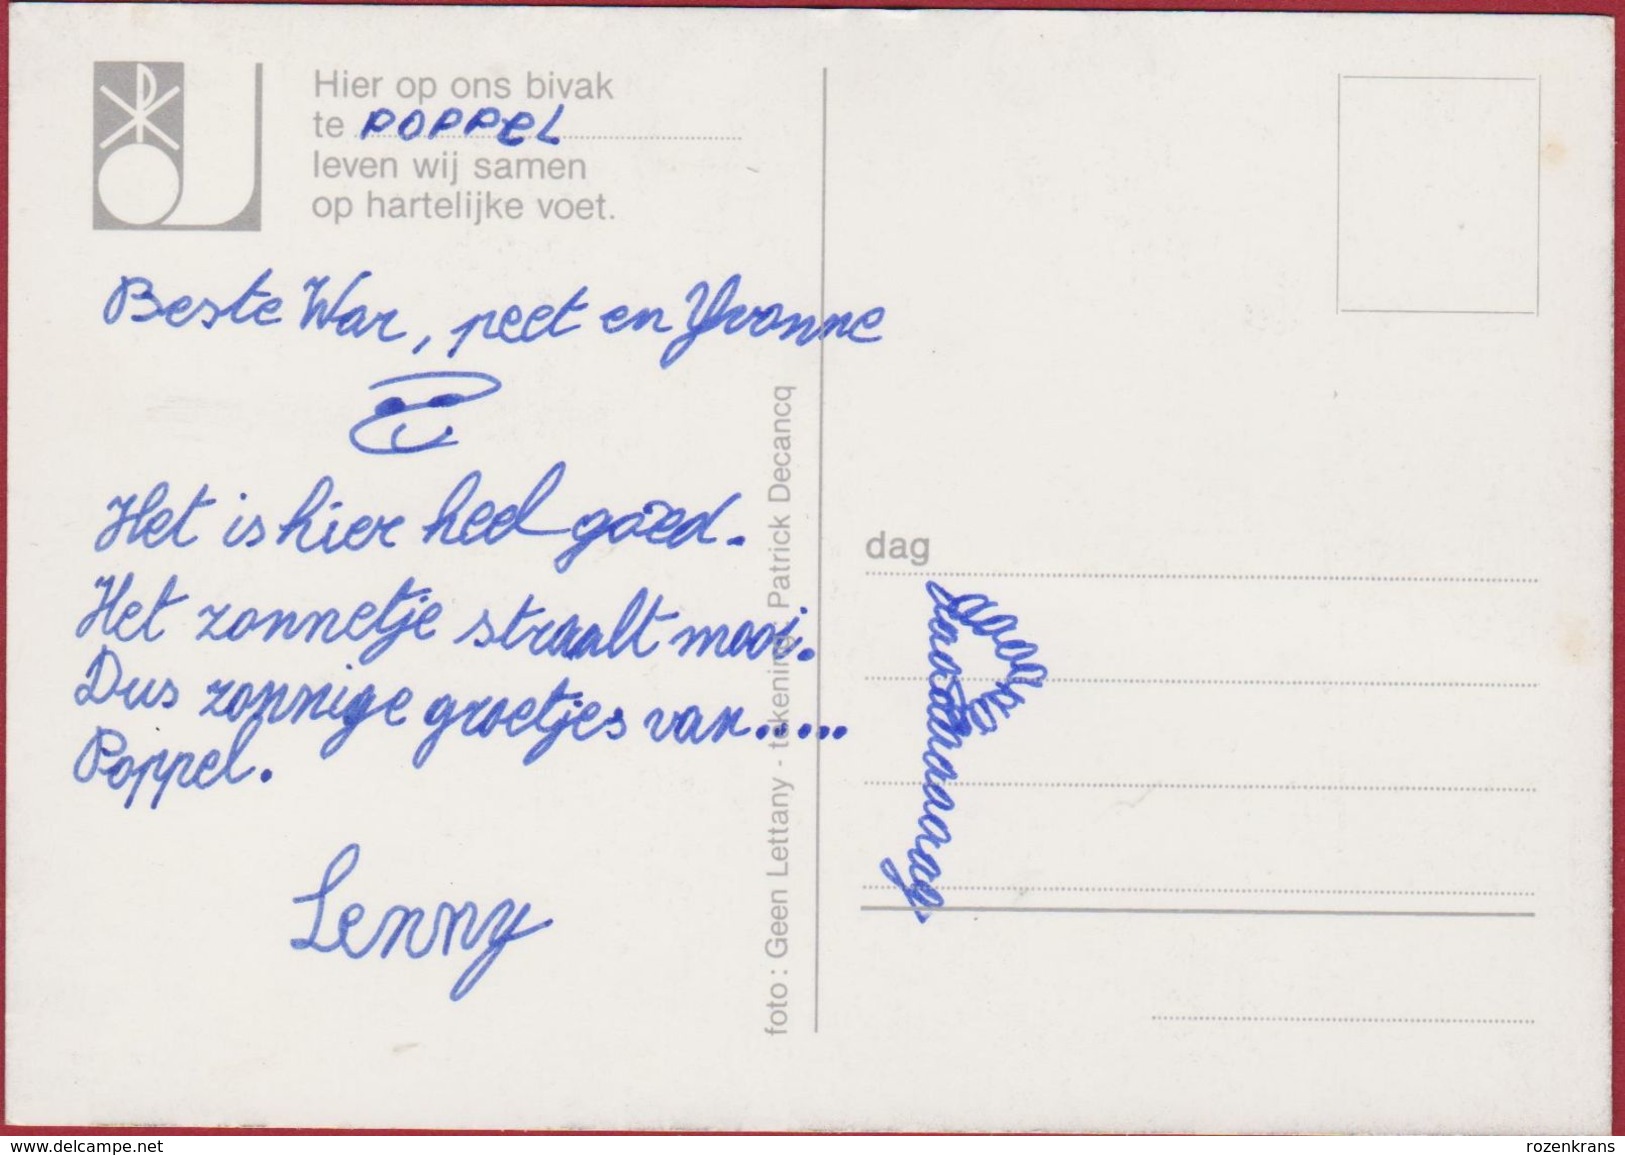 Hier op ons bivak
te POPPEL
leven wij samen
op hartelijke voet.
Beste War, peet en Yvonne
Het is hier heel goed.
Het zonnetje straalt mooi.
Dus zonnige groetjes van.....
Poppel.
Lenny
foto : Geen Lettany - tekening: Patrick Decancq
dag
www.delcampe.net
rozenkrans